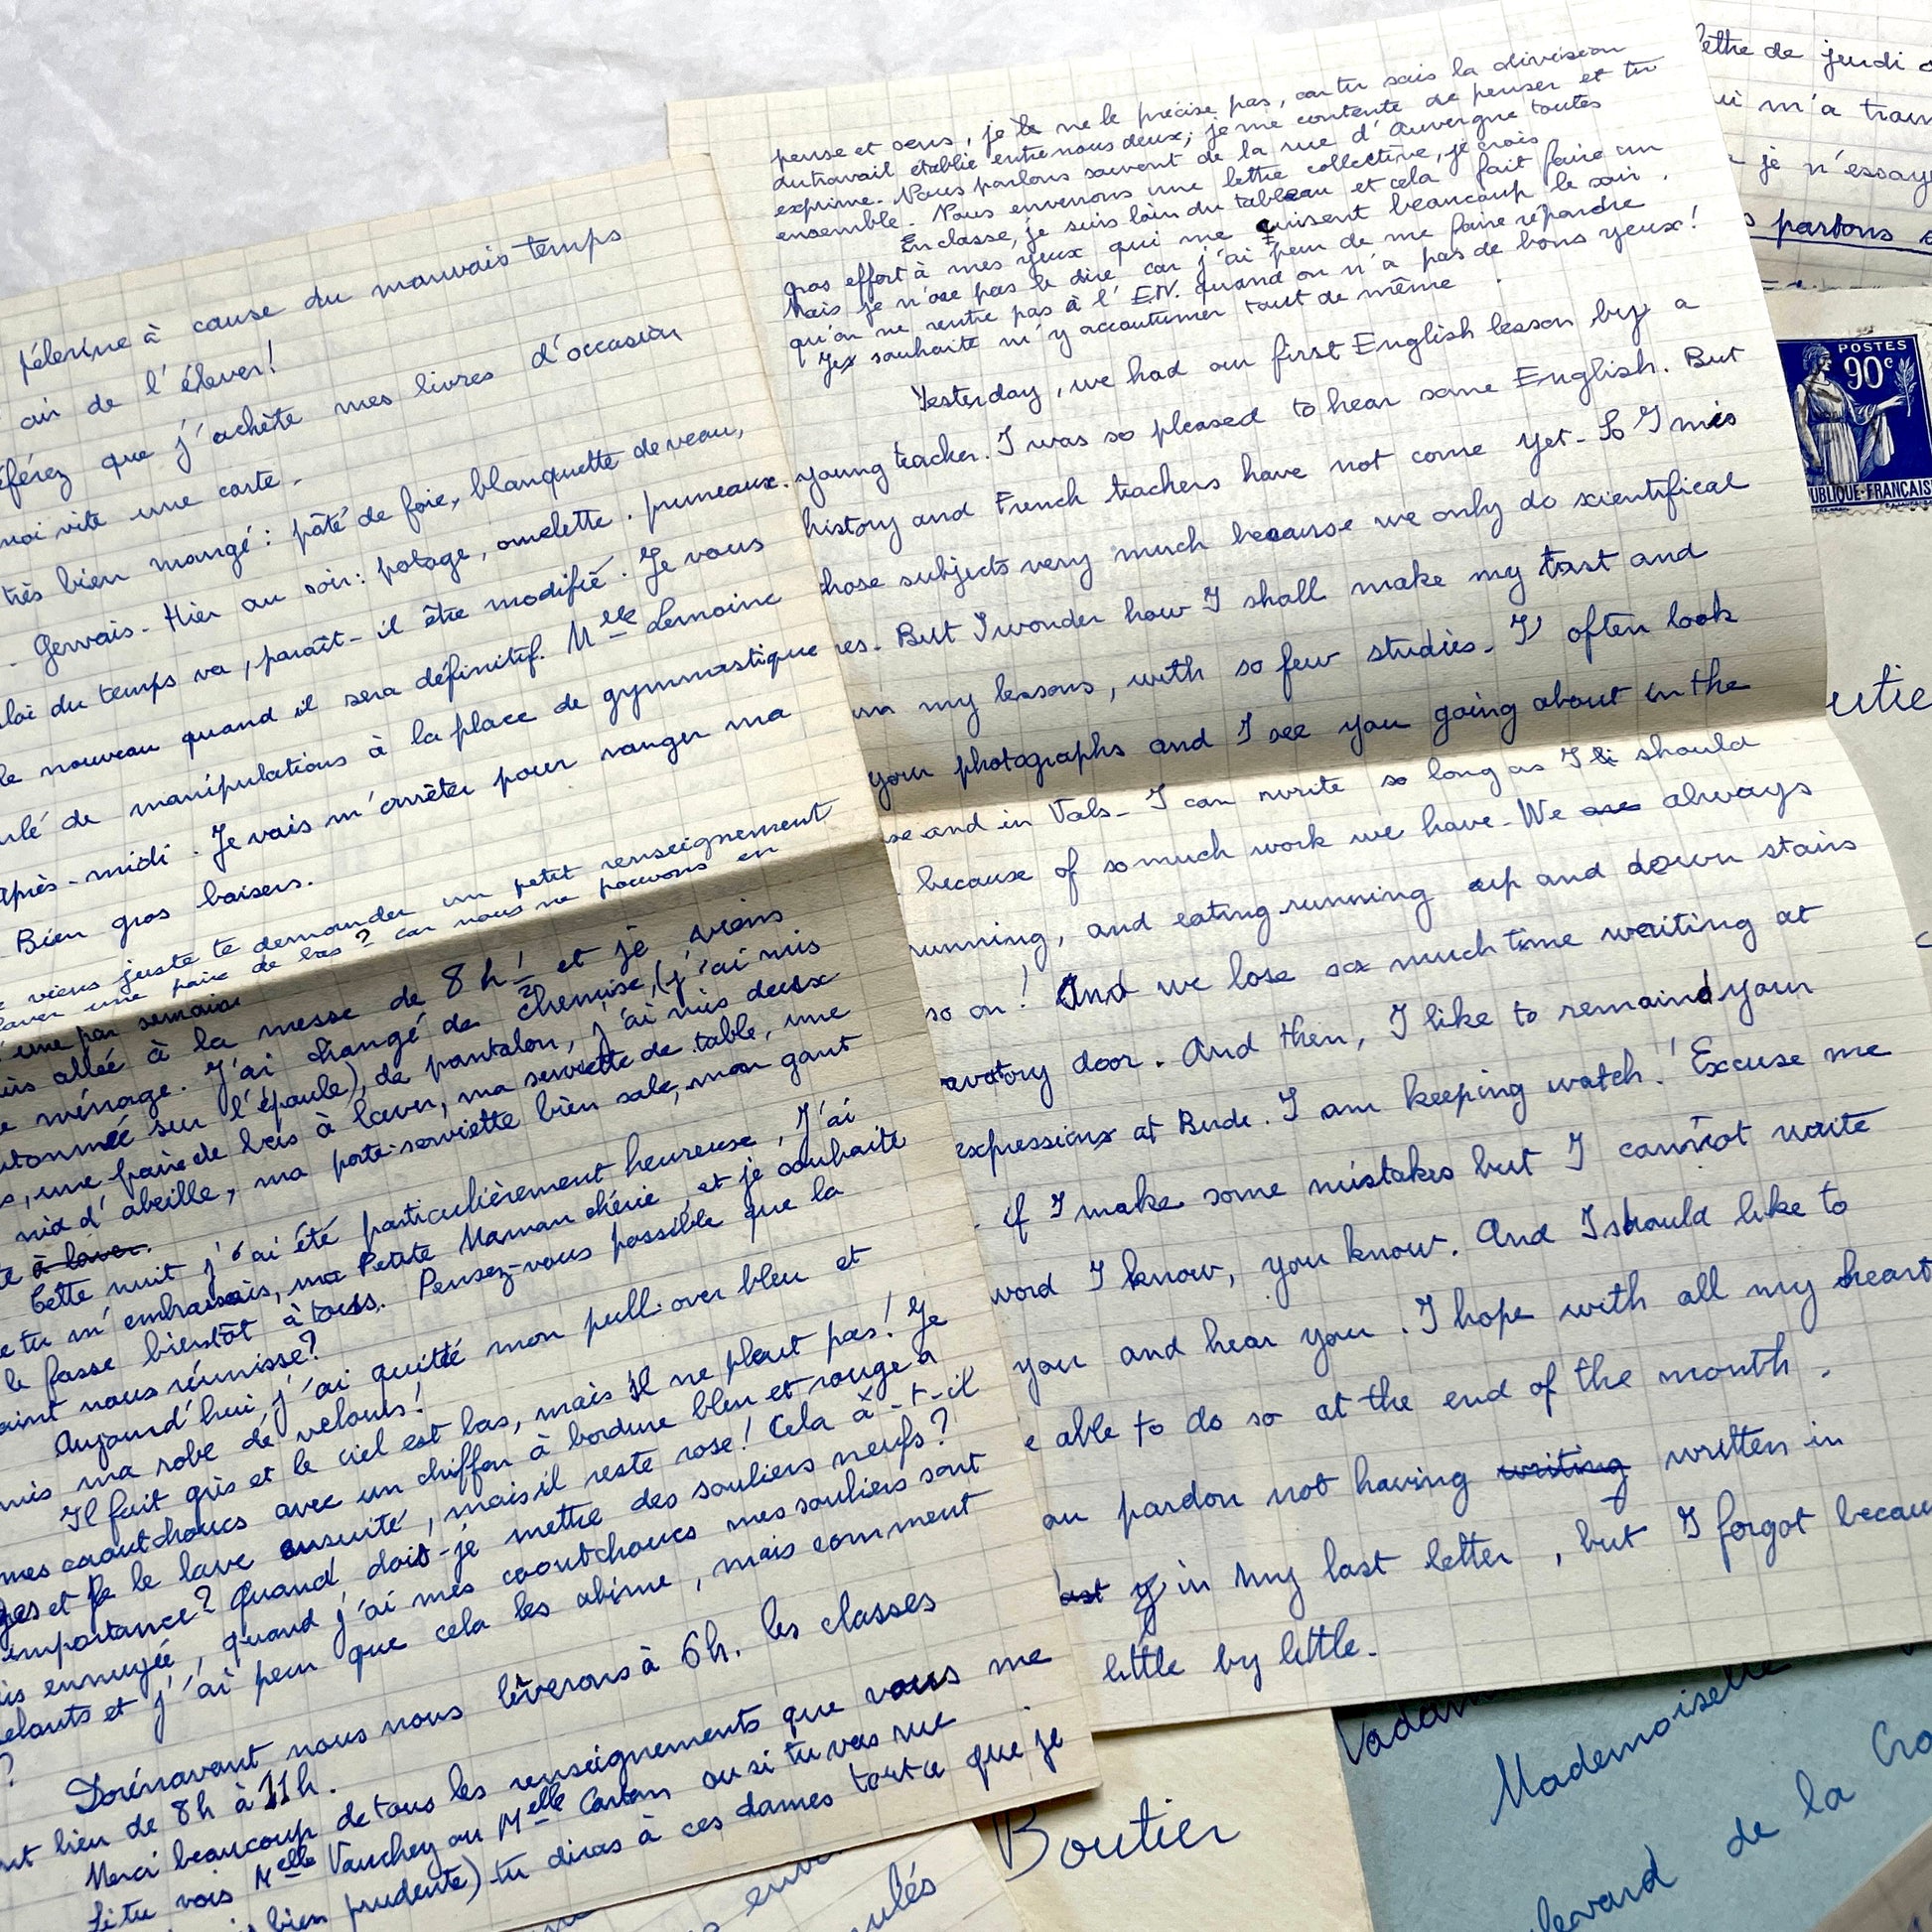 pélerine à cause du mauvais temps
air de l'élever!
que j'achète mes livres d'occasion
moi vite une carte.
très bien mangé: pâté de foie, blanquette de veau,
Gervais - Hier au soir: potage, omelette. pruneaux.
du temps va, paraît-il être modifié. Je vous
le nouveau quand il sera définitif. Melle Lemoine
de manipulations à la place de gymnastique
après-midi. Je vais m'arrêter pour ranger ma
Bien gros baisers.
viens juste te demander un petit renseignement
laver une paire de bas? car nous ne pouvons en
qu'une par semaine
allée à la messe de 8h ½ et je viens
ménage. J'ai changé de chemise, (j'ai mis
sur l'épaule), de pantalon, j'ai mis deux
, une paire de bas à laver, ma serviette de table, une
nid d'abeille, ma porte-serviette bien sale, mon gant
à laver.
Cette nuit j'ai été particulièrement heureuse, J'ai
tu m'embrassais, ma Petite Maman chérie, et je souhaite
le fasse bientôt à tous. Pensez-vous possible que la
nous réunisse?
Aujourd'hui j'ai quitté mon pull-over bleu et
mis ma robe de velours!
Il fait gris et le ciel est bas, mais il ne pleut pas! Je
mes caoutchoucs avec un chiffon à bordure bleu et rouge
et je le lave ensuite, mais il reste rose! Cela a-t-il
importance? Quand dois-je mettre des souliers neufs?
ennuyée, quand j'ai mes caoutchoucs mes souliers sont
et j'ai peur que cela les abime, mais comment
?
Dorénavant nous nous lèverons à 6h. les classes
lieu de 8h à 11h.
Merci beaucoup de tous les renseignements que vous me
Si tu vois Melle Vauchey ou Melle Cartan ou si tu vas rue
bien prudente) tu diras à ces dames tout ce que je
pense et sens, je le ne le précise pas, car tu sais la division
du travail établie entre nous deux; je me contente de penser et tu
exprime. Nous parlons souvent de la rue d'Auvergne toutes
ensemble. Nous enverrons une lettre collective, je crois
En classe, je suis loin du tableau et cela fait faire un
gros effort à mes yeux qui me cuisent beaucoup le soir.
Mais je n'ose pas le dire car j'ai peur de me faire répondre
qu'on ne rentre pas à l'E.N. quand on n'a pas de bons yeux!
souhaite m'y accoutumer tout de même.
Yesterday, we had our first English lesson by a
young teacher. I was so pleased to hear some English. But
history and French teachers have not come yet. So I miss
those subjects very much because we only do scientifical
res. But I wonder how I shall make my tast and
my lessons, with so few studies. I often look
your photographs and I see you going about in the
se and in Vals. I can write so long as I should
because of so much work we have. We are always
running, and eating running up and down stairs
so on! And we lose so much time waiting at
avatory door. And then, I like to remaind your
expressions at Bude. I am keeping watch! Excuse me
if I make some mistakes but I cannot write
word I know, you know. And I should like to
you and hear you. I hope with all my heart
e able to do so at the end of the month.
ou pardon not having writing written in
in my last letter, but I forgot becau
little by little.
ettre de jeudi
qui m'a
je n'essay
partons
POSTES
90c
UBLIQUE-FRANCAIS
utie
Boutier
Madam
Mademoiselle
de la Cro